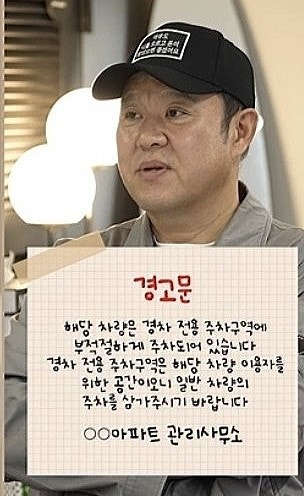 경고문
해당 차량은 경차 전용 주차구역에
부적절하게 주차되어 있습니다
경차 전용 주차구역은 해당 차량 이용자를
위한 공간이오니 일반 차량의
주차를 삼가주시기 바랍니다
○○아파트 관리사무소